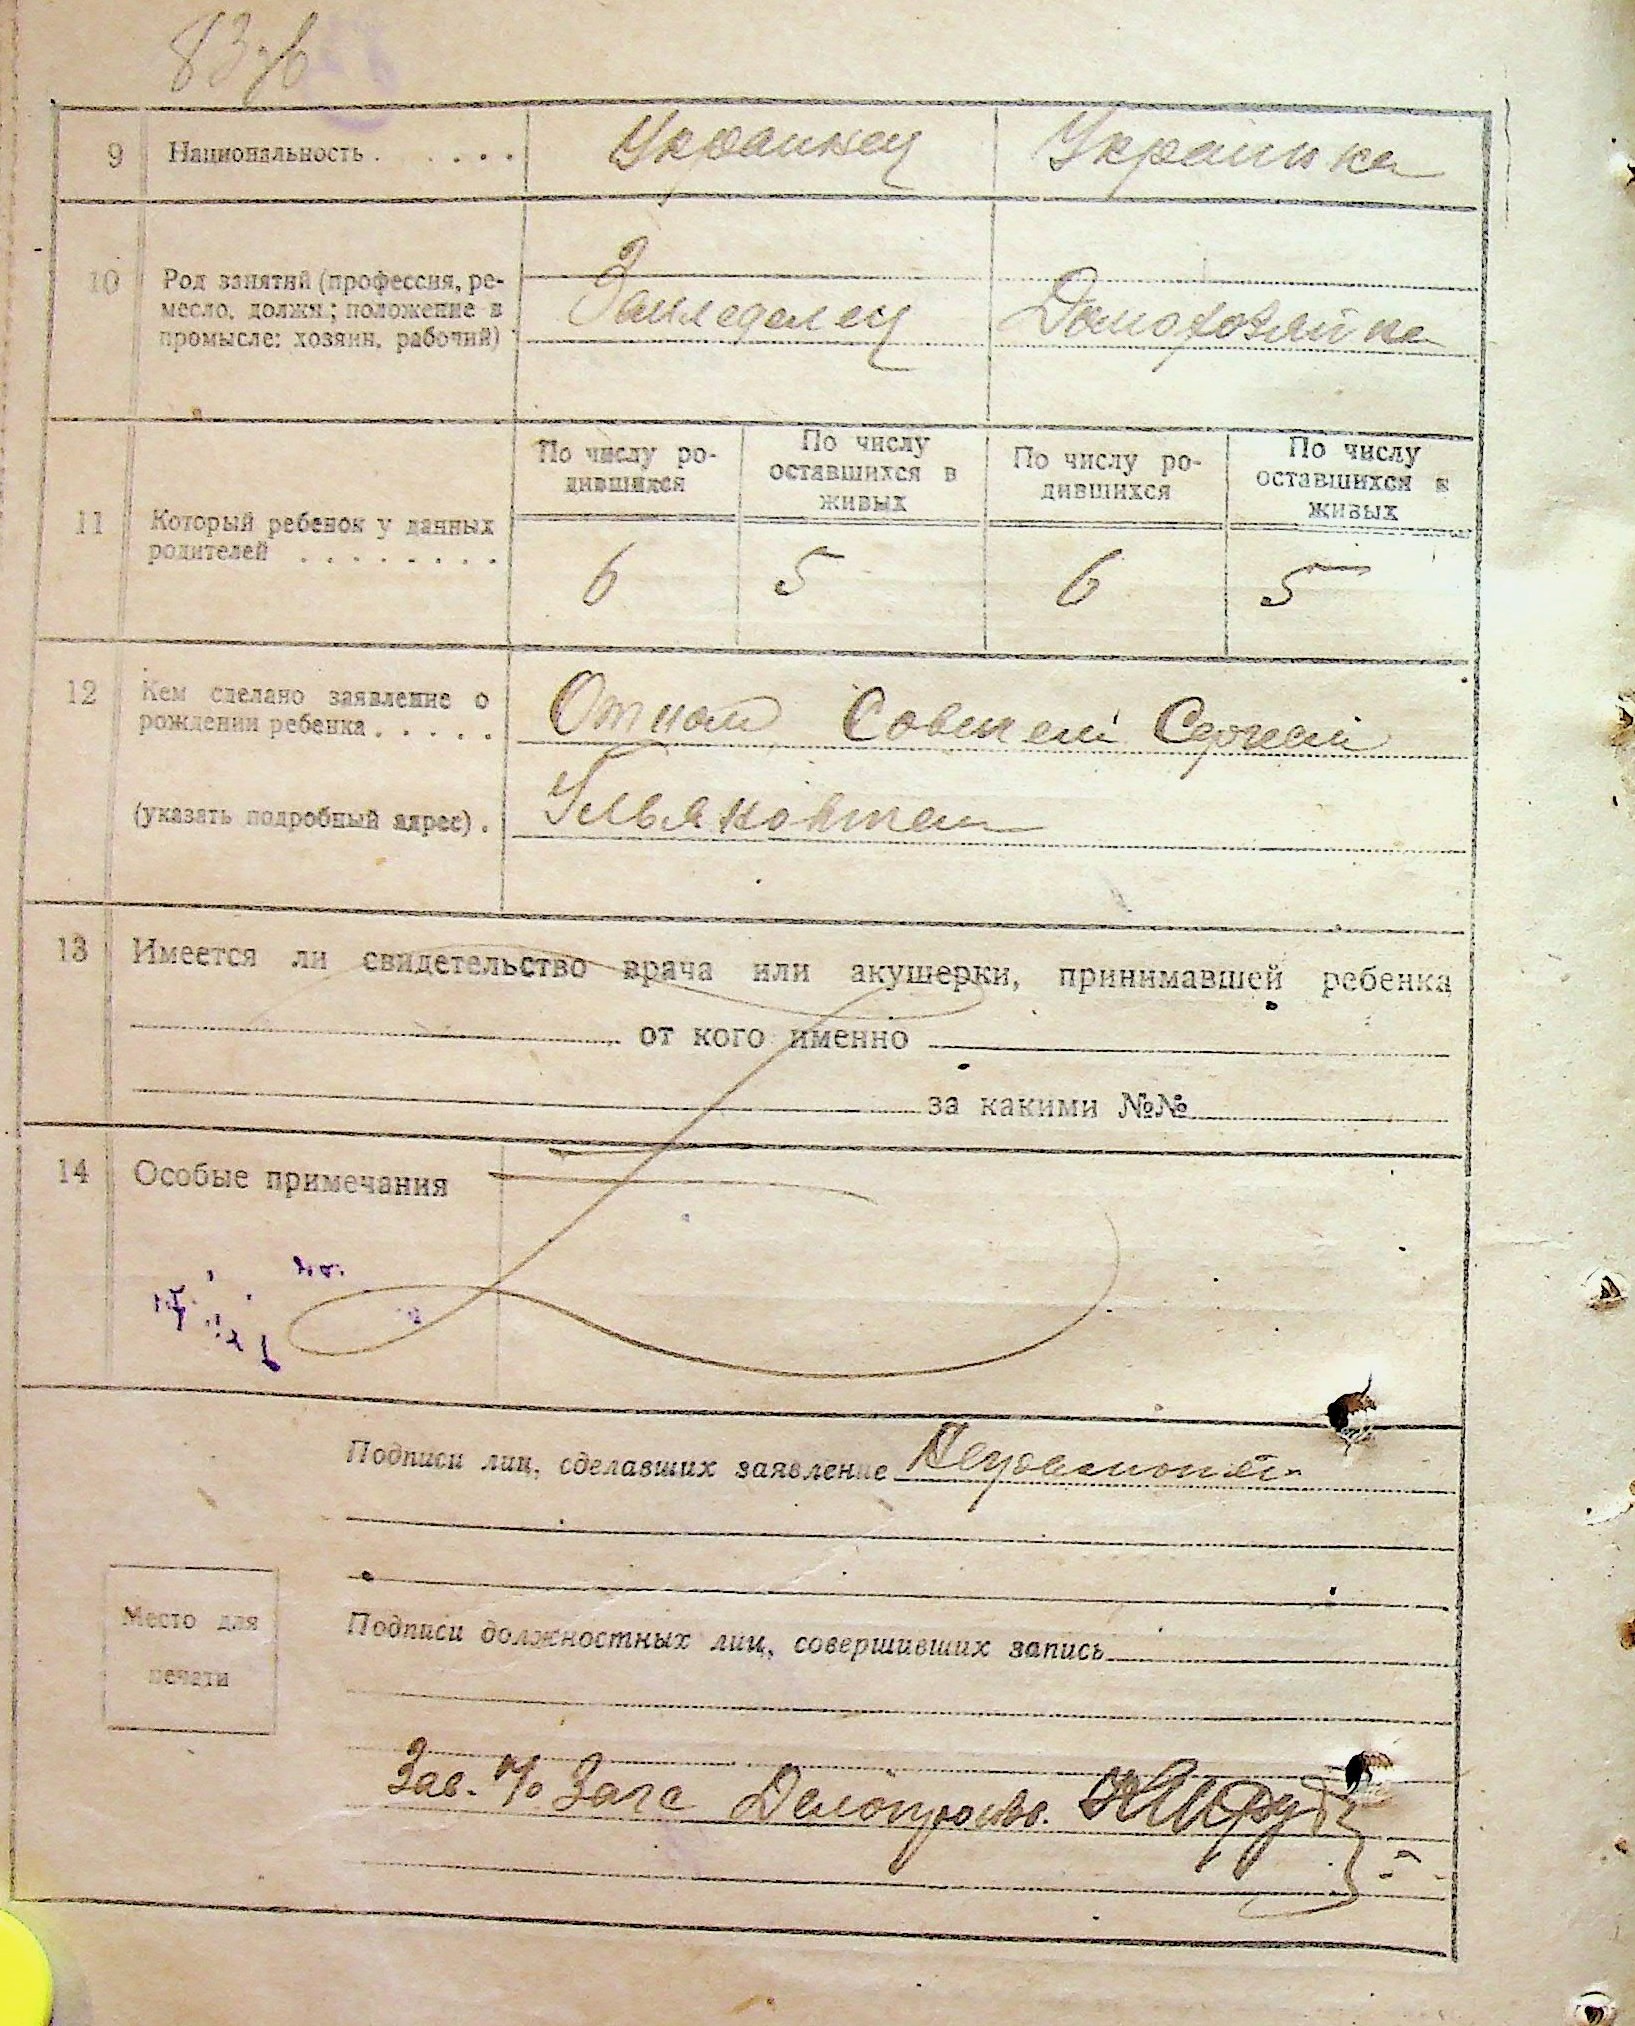 83 об
9 Национальность . . . . . Украинец Украинка
10 Род занятий (профессия, ре-
месло, должн.; положение в
промысле: хозяин, рабочий)
Земледелец Домохозяйка
11 Который ребенок у данных
родителей . . . . . . . .
По числу ро-
дившихся
По числу
оставшихся в
живых
По числу ро-
дившихся
По числу
оставшихся в
живых
6 5 6 5
12 Кем сделано заявление о
рождении ребенка . . . . .
(указать подробный адрес) .
Отцом Сергей
13 Имеется ли свидетельство врача или акушерки, принимавшей ребенка
от кого именно
за какими №№
14 Особые примечания
Подписи лиц, сделавших заявление
Место для
печати
Подписи должностных лиц, совершивших запись
Зав. Загс Делопроизв.